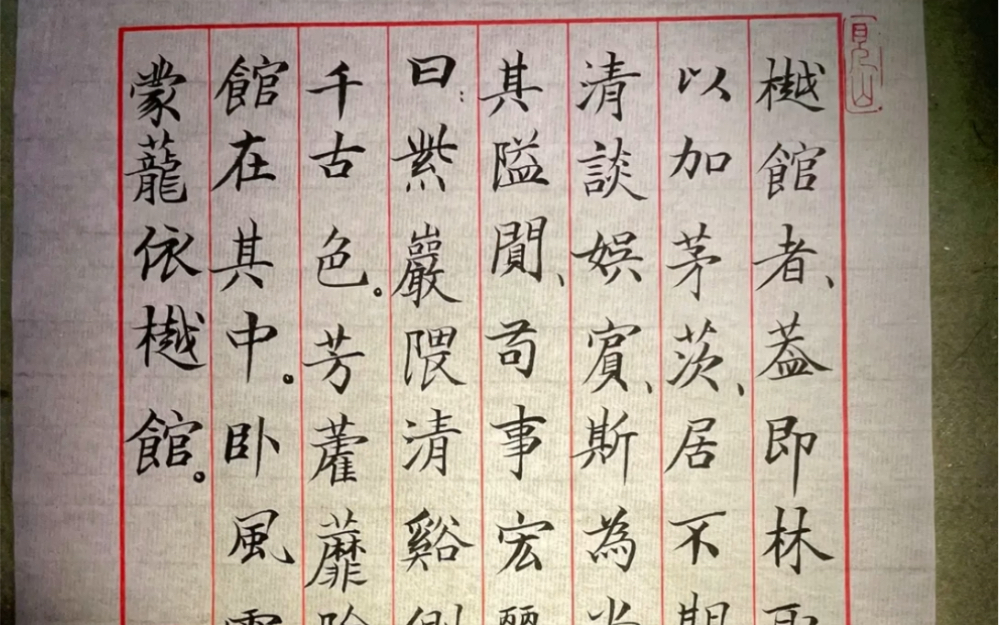 見山
樾館者、蓋即林
以加茅茨、居不
清談娛賓、斯為
其隘闃、苟事宏
曰：紫巖隈清谿
千古色。芳藿蘼
館在其中。卧風
蒙蘢依樾館。